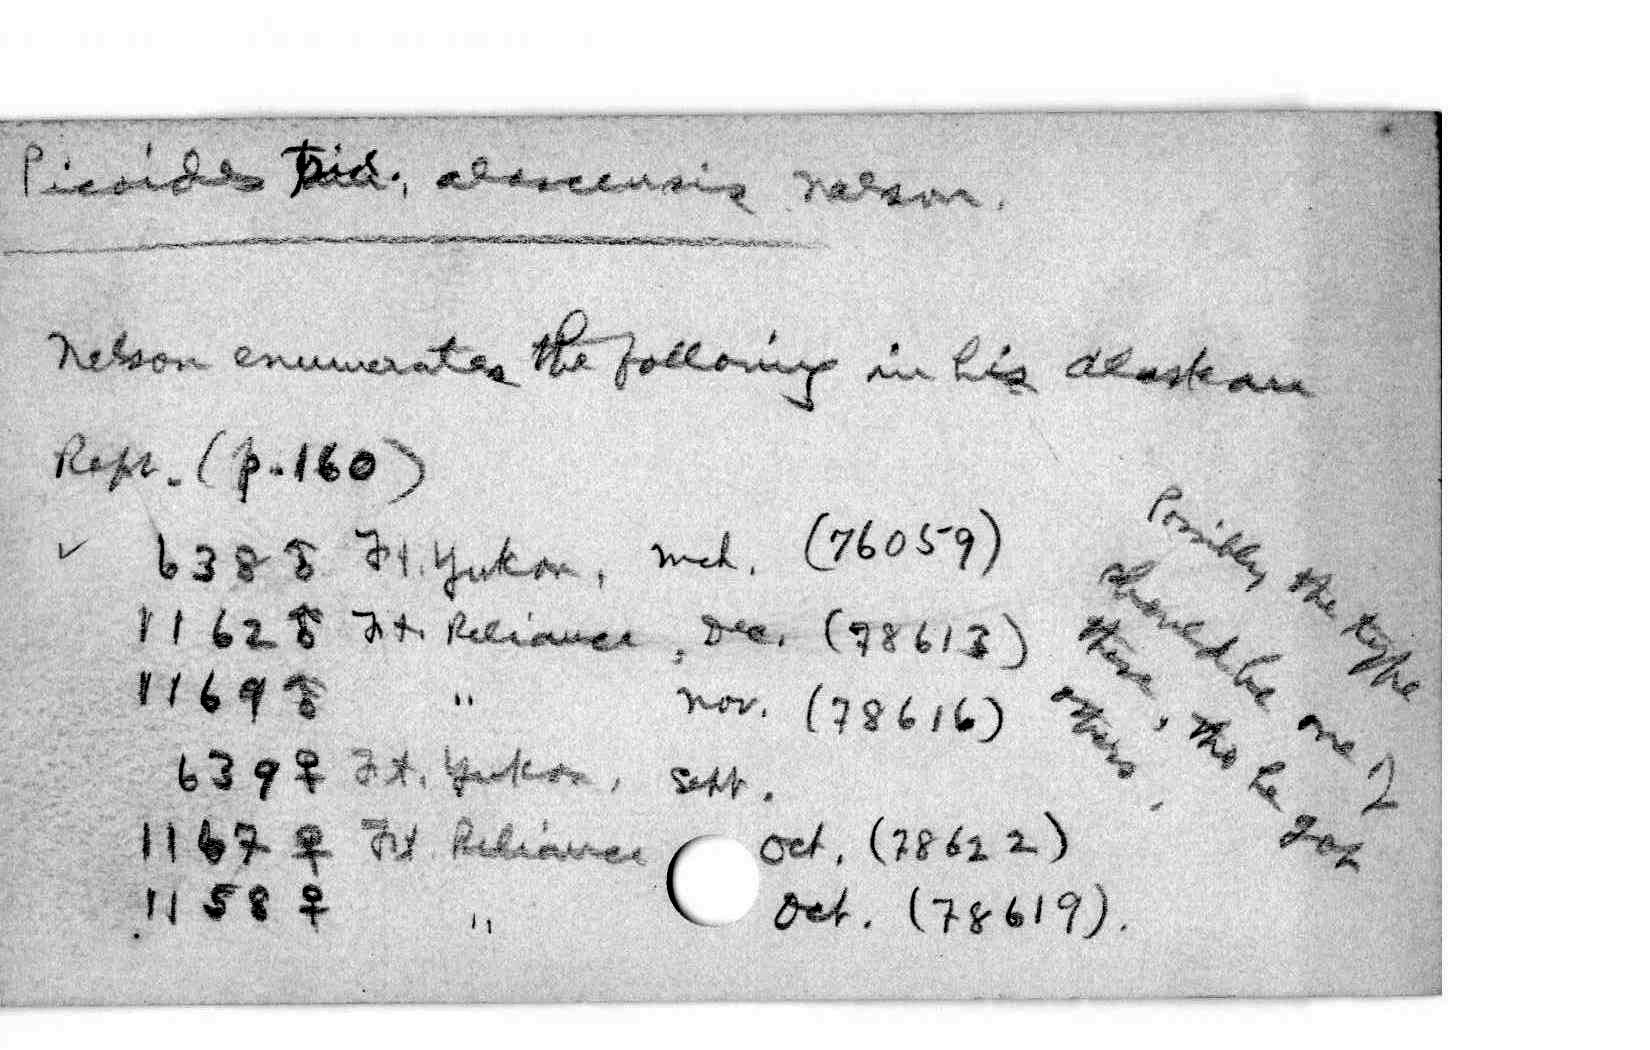 Picoides trid. alascensis Nelson.
Nelson enumerates the following in his Alaskan
Rept. (p. 160)
✓ 638 ♂ Ft. Yukon, Mch. (76059)
1162 ♂ Ft. Reliance, Dec. (78613)
1169 ♂ " Nov. (78616)
639 ♀ Ft. Yukon, Sept.
1167 ♀ Ft. Reliance Oct. (78622)
1158 ♀ " Oct. (78619).
Possibly the type
should be one of
these, tho he got
others.